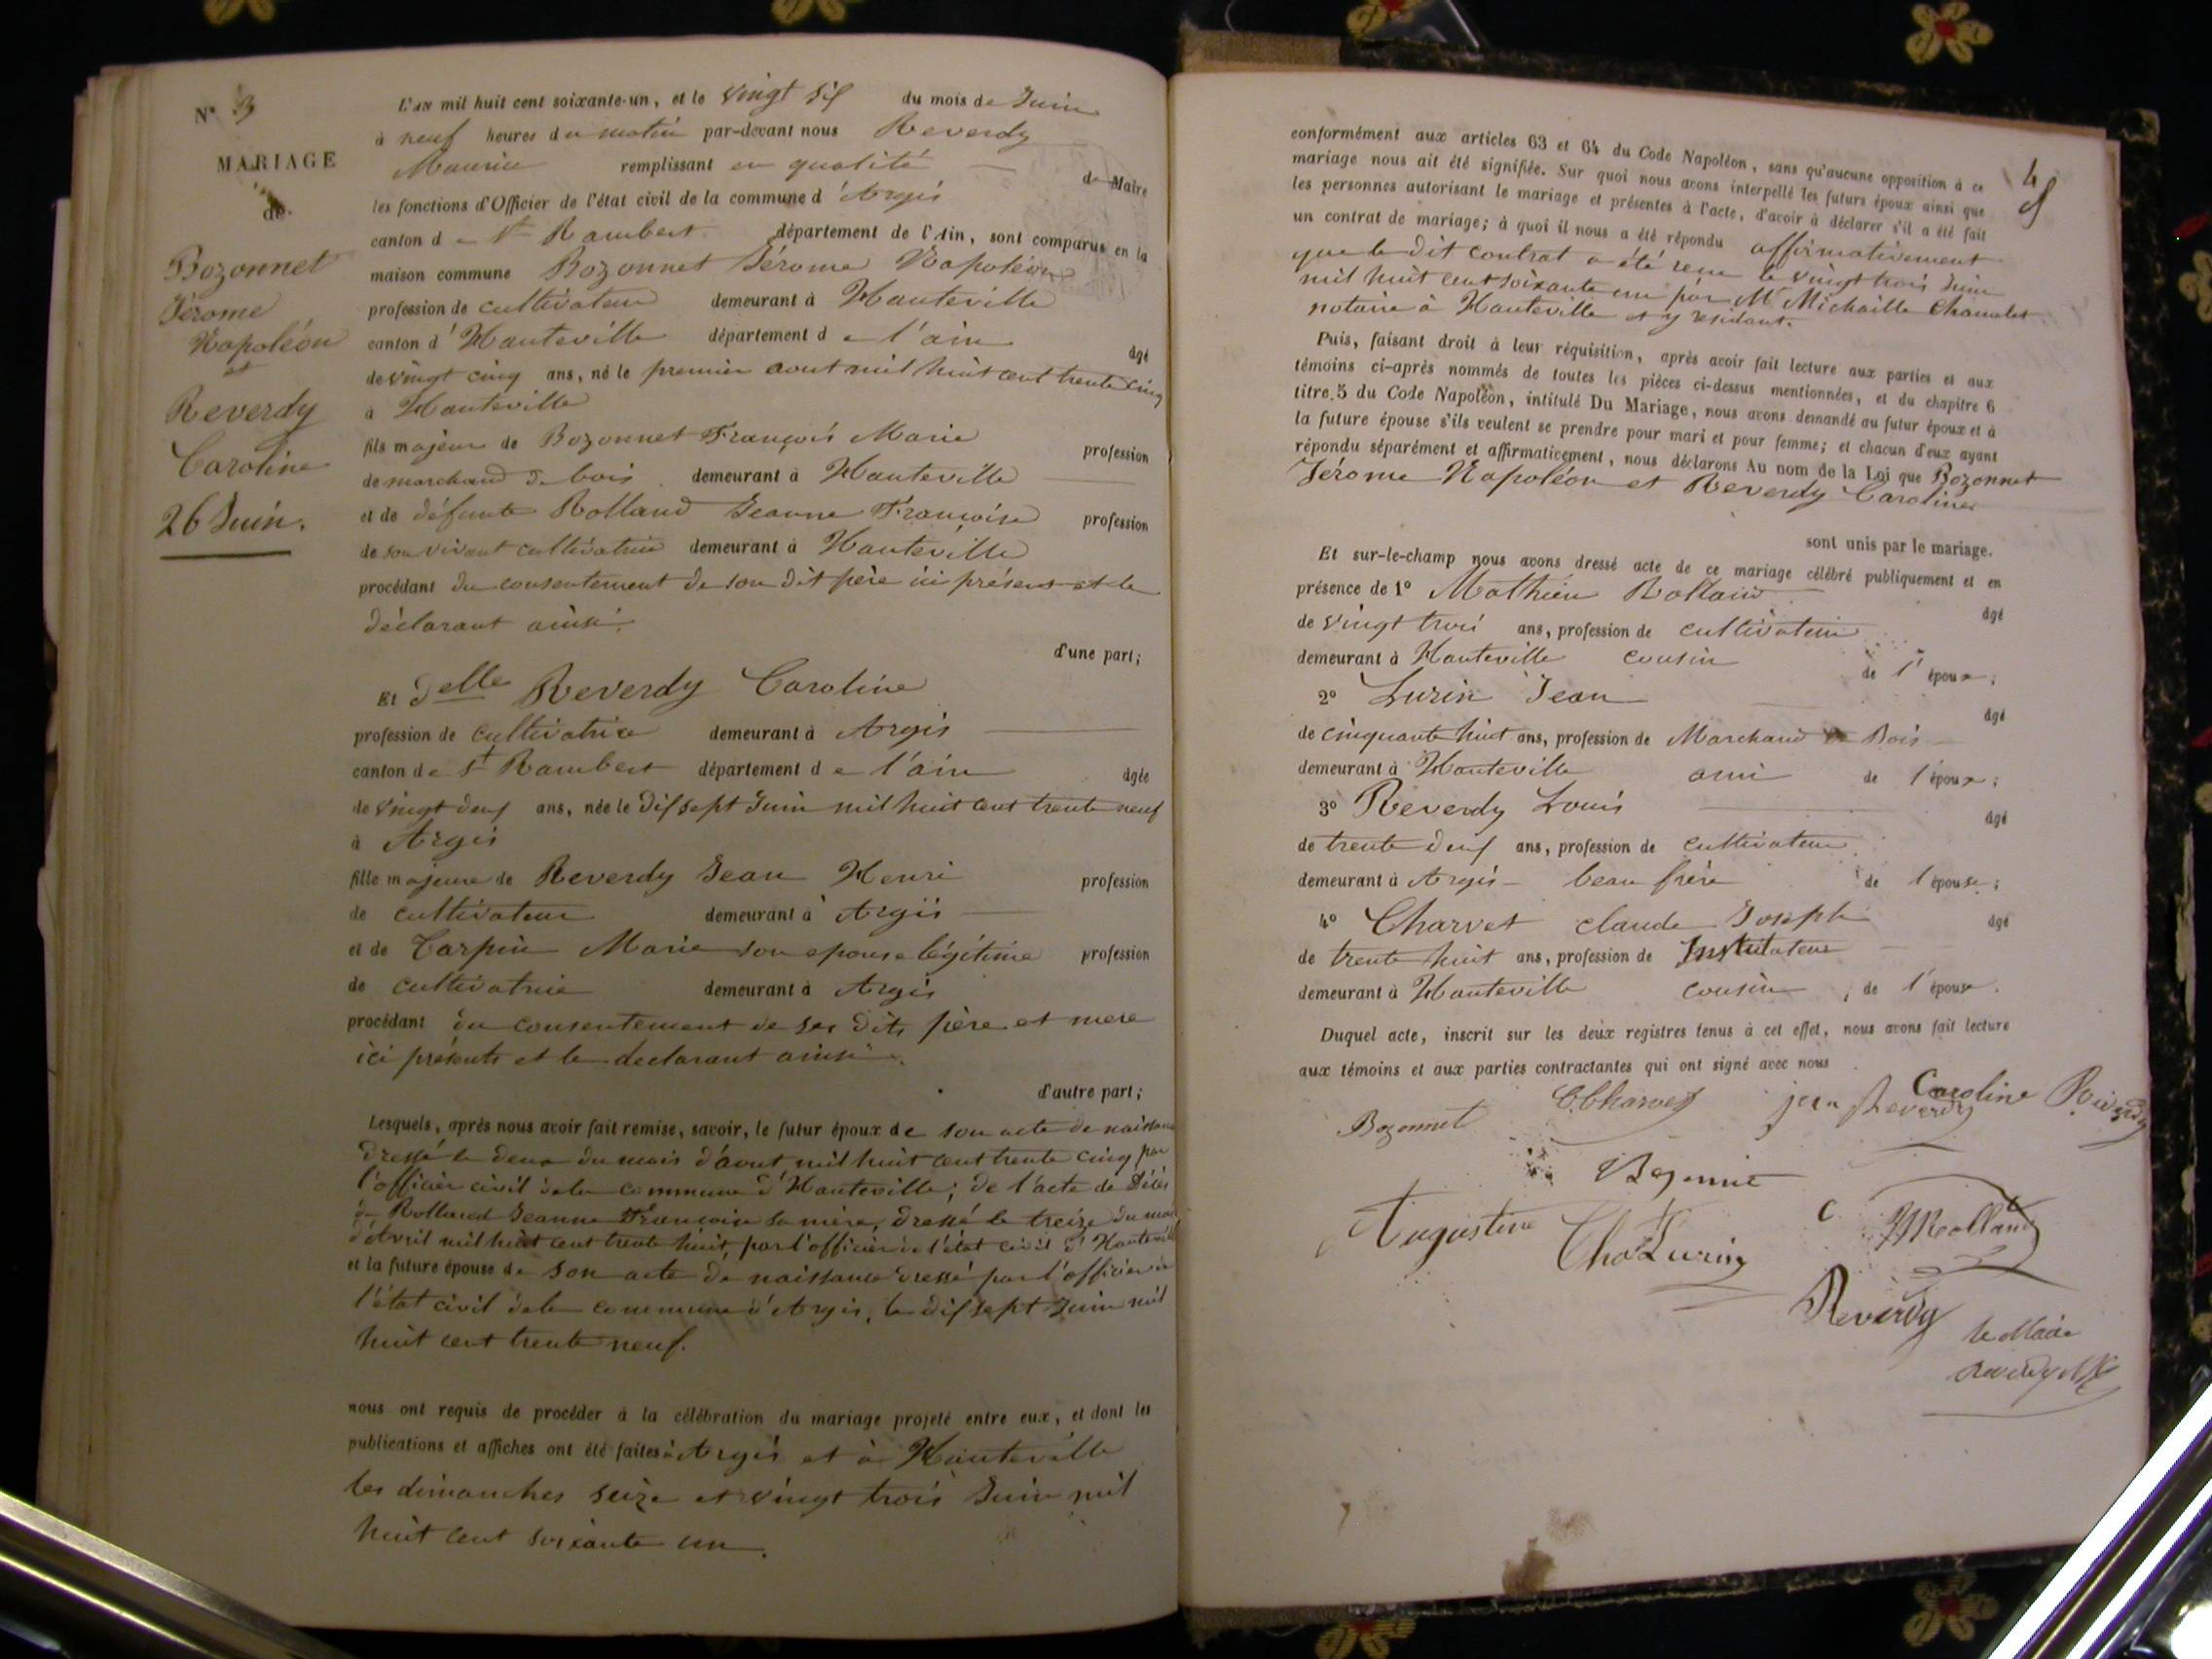 N° 3
MARIAGE
de
Bozonnet
Jérome
Napoléon
et
Reverdy
Caroline
26 Juin.
L'AN mil huit cent soixante-un, et le vingt six du mois de Juin
à neuf heures du matin par-devant nous Reverdy
Maurice remplissant en qualité de Maire
les fonctions d'Officier de l'état civil de la commune d'Argis
canton de St Rambert département de l'Ain, sont comparus en la
maison commune Bozonnet Jérome Napoléon
profession de cultivateur demeurant à Hauteville
canton d'Hauteville département de l'ain âgé
de vingt cinq ans, né le premier aout mil huit cent trente cinq
à Hauteville
fils majeur de Bozonnet François Marie profession
de marchand de bois demeurant à Hauteville
et de défunte Rolland Jeanne Françoise profession
de son vivant cultivatrice demeurant à Hauteville
procédant du consentement de son dit père ici présent et le
déclarant ainsi.
d'une part;
Et delle Reverdy Caroline
profession de cultivatrice demeurant à Argis
canton de St Rambert département de l'ain âgée
de vingt deux ans, née le dix sept Juin mil huit cent trente neuf
à Argis
fille majeure de Reverdy Jean Henri profession
de cultivateur demeurant à Argis
et de Carpin Marie son epouse légitime profession
de cultivatrice demeurant à Argis
procédant du consentement de ses dits père et mere
ici présents et le declarant ainsi.
d'autre part;
Lesquels, après nous avoir fait remise, savoir, le futur époux de son acte de naissance
dressé le deux du mois d'aout mil huit cent trente cinq par
l'officier civil de la commune d'Hauteville; de l'acte de décès
de Rolland Jeanne Françoise sa mère, dressé le treize du mois
d'avril mil huit cent trente huit, par l'officier de l'état civil d'Hauteville
et la future épouse de son acte de naissance dressé par l'officier de
l'état civil de la commune d'Argis, le dix sept Juin mil
huit cent trente neuf.
nous ont requis de procéder à la célébration du mariage projeté entre eux, et dont les
publications et affiches ont été faites à Argis et à Hauteville
les dimanches seize et vingt trois Juin mil
huit cent soixante un.
4
conformément aux articles 63 et 64 du Code Napoléon, sans qu'aucune opposition à ce
mariage nous ait été signifiée. Sur quoi nous avons interpellé les futurs époux ainsi que
les personnes autorisant le mariage et présentes à l'acte, d'avoir à déclarer s'il a été fait
un contrat de mariage; à quoi il nous a été répondu affirmativement
que le dit contrat a été recu le vingt trois Juin
mil huit cent soixante un par Me Michaille Chamelet
notaire à Hauteville et y residant.
Puis, faisant droit à leur réquisition, après avoir fait lecture aux parties et aux
témoins ci-après nommés de toutes les pièces ci-dessus mentionnées, et du chapitre 6
titre 5 du Code Napoléon, intitulé Du Mariage, nous avons demandé au futur époux et à
la future épouse s'ils veulent se prendre pour mari et pour femme; et chacun d'eux ayant
répondu séparément et affirmativement, nous déclarons Au nom de la Loi que Bozonnet
Jérome Napoléon et Reverdy Caroline
sont unis par le mariage.
Et sur-le-champ nous avons dressé acte de ce mariage célébré publiquement et en
présence de 1° Mathieu Rolland âgé
de vingt trois ans, profession de cultivateur
demeurant à Hauteville cousin de l'époux;
2° Lurin Jean âgé
de cinquante huit ans, profession de Marchand de Bois
demeurant à Hauteville ami de l'époux;
3° Reverdy Louis âgé
de trente deux ans, profession de cultivateur
demeurant à Argis beau frère de l'épouse;
4° Charvet claude Joseph âgé
de trente huit ans, profession de Instituteur
demeurant à Hauteville cousin, de l'épouse.
Duquel acte, inscrit sur les deux registres tenus à cet effet, nous avons fait lecture
aux témoins et aux parties contractantes qui ont signé avec nous
Bozonnet C.Charvet jean Reverdy Caroline Reverdy
Bozonnet
Augustine Lurin Rolland
Reverdy
le Maire